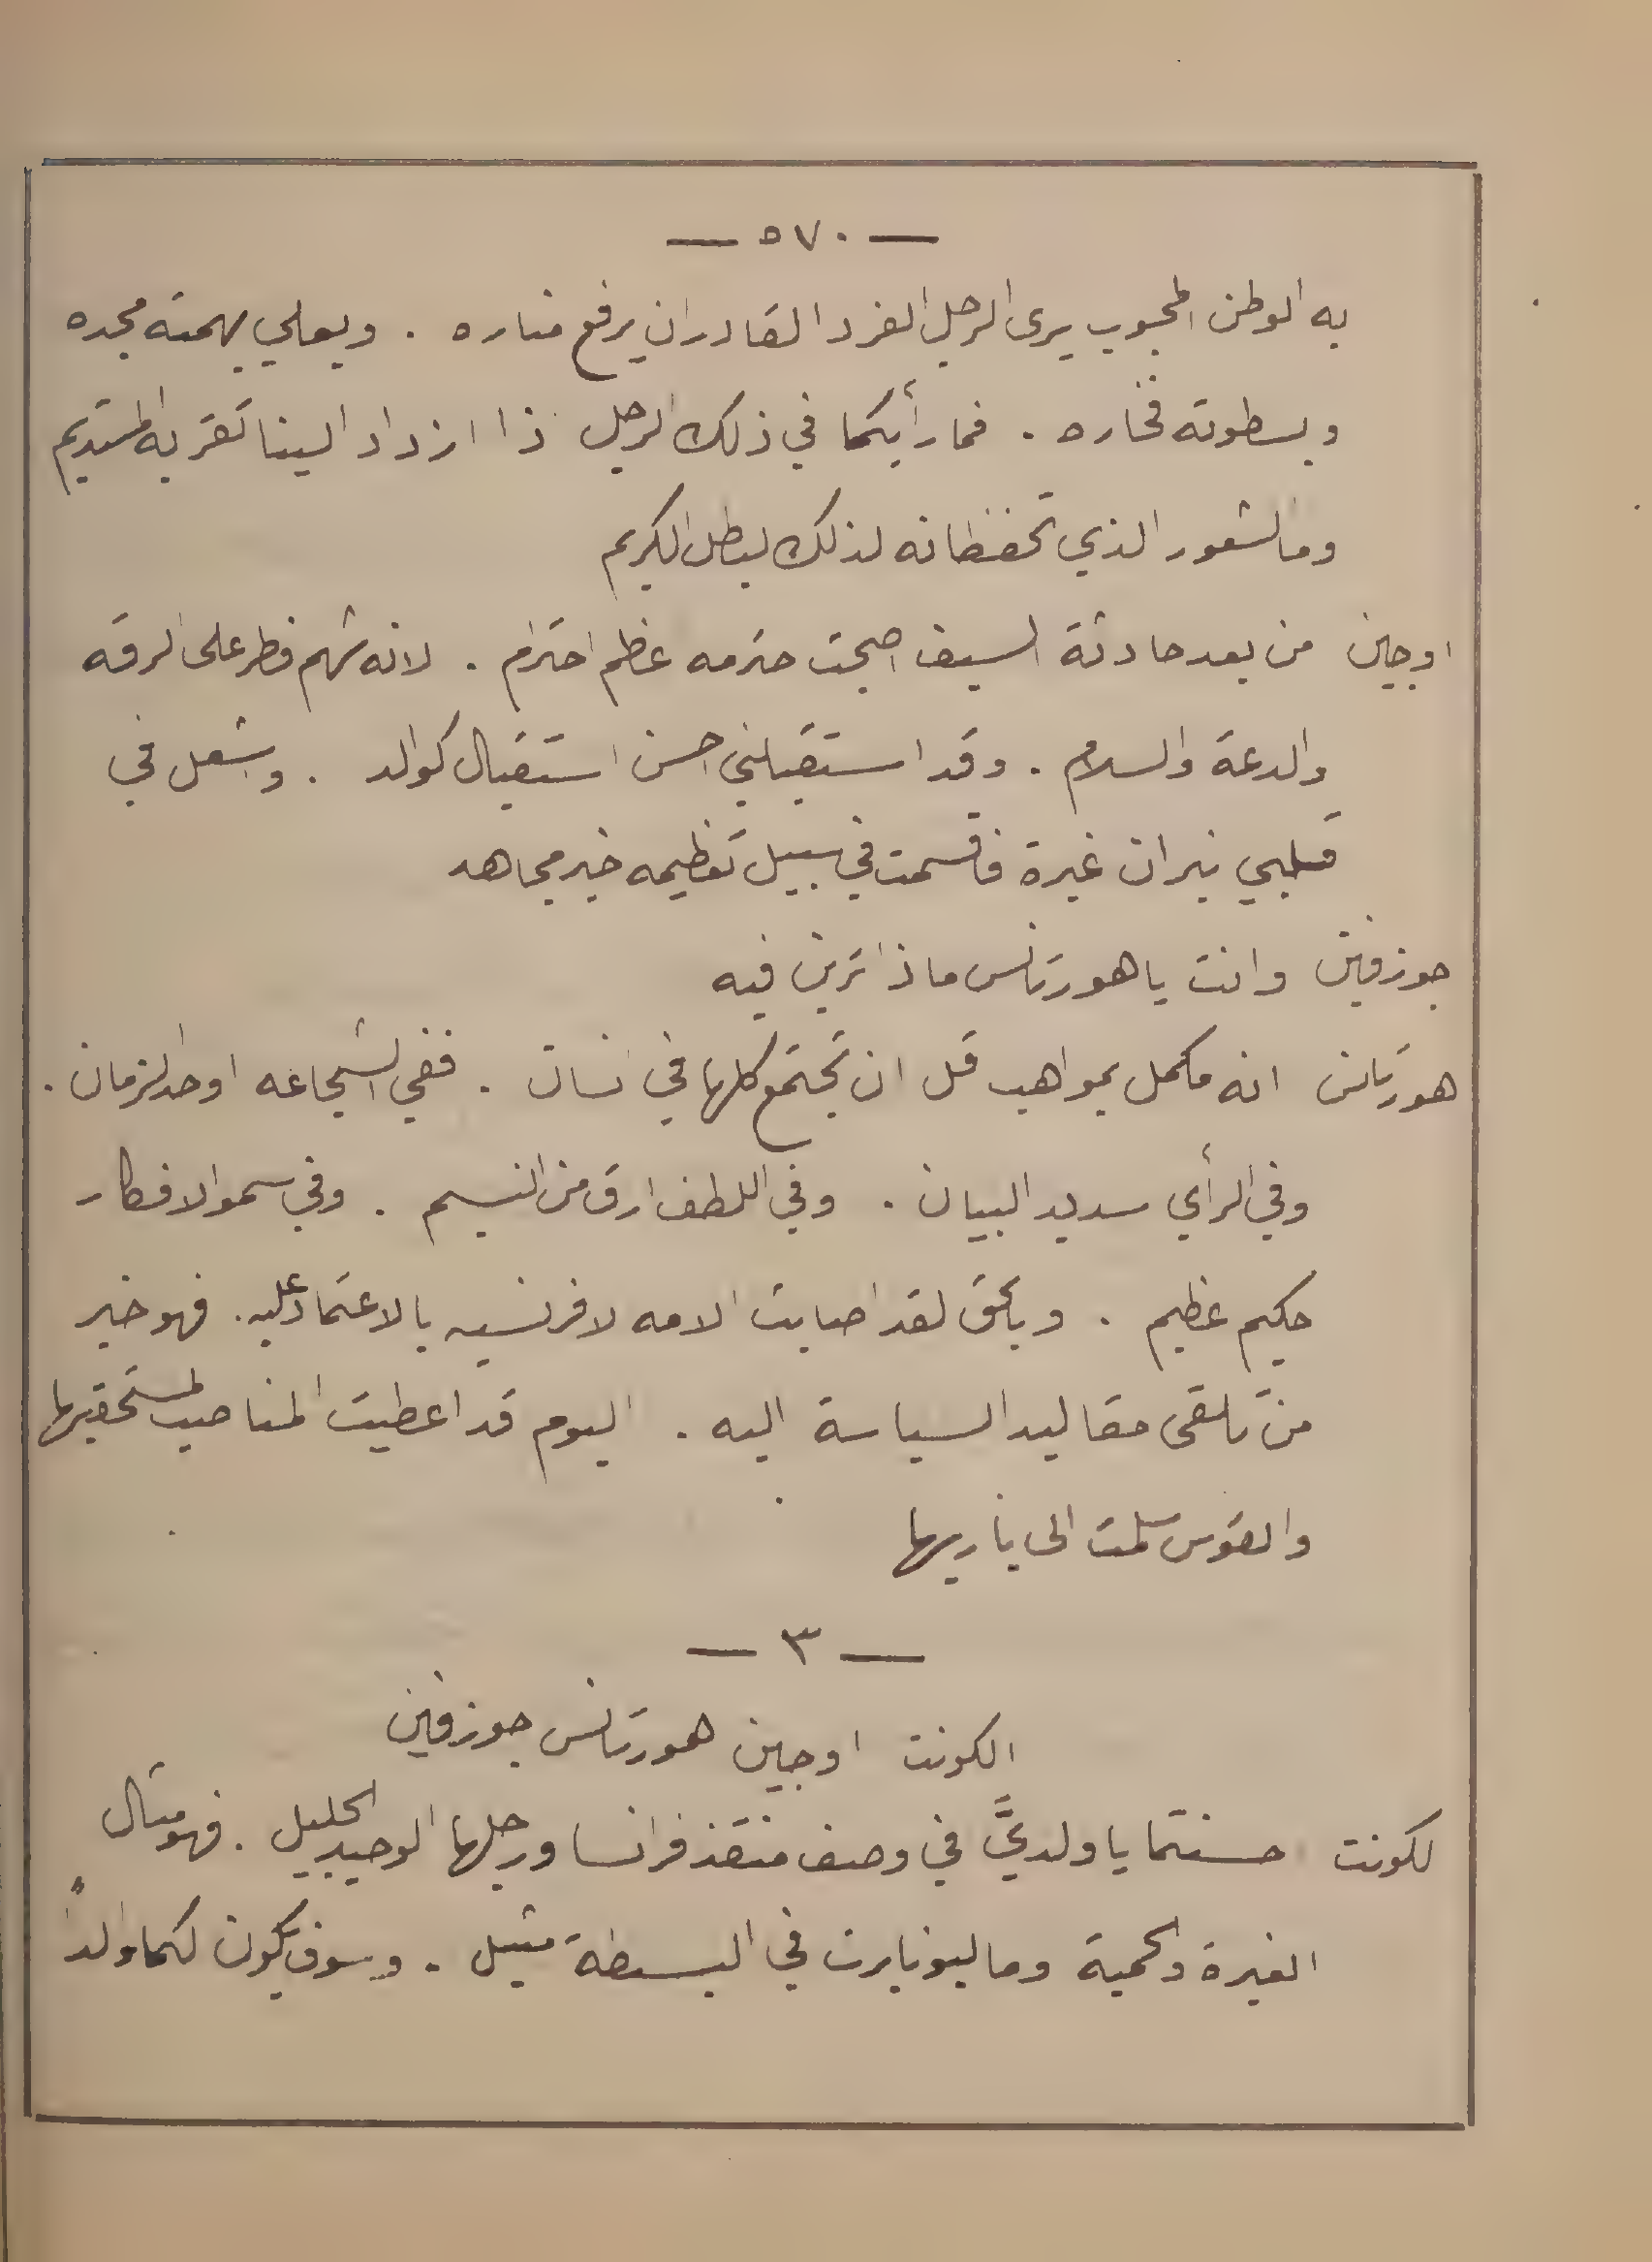 — ٥٧٠ —
به الوطن المحبوب يرى الرجل الفرد القادر ان يرفع مناره . ويعلي بهمته مجده
وبسطوته فخاره . فما رأيكما في ذلك الرجل ذا ازداد الينا تقربه المستديم
وما لشعور الذي تحفظانه لذلك لبطل الكريم
اوجين من بعد حادثة السيف اصبحت حترمه عظم احترام . لانه شهم فطر على الرقه
والدعة والسلام . وقد استقبلني احسن استقبال كوالد . واشعل في
قلبي نيران غيرة فاقسمت في سبيل تعظيمه خير مجاهد
جوزفين وانت يا هورتانس ماذا ترين فيه
هورتانس انه مكمل بمواهب قل ان تجتمع كلها في انسان . ففي الشجاعه اوحد الزمان .
وفي الرأي سديد البيان . وفي اللطف ارق من النسيم . وفي سمو الافكار
حكيم عظيم . وبالحق لقد اصابت الامه لافرنسيه بالاعتماد عليه . فهو خير
من تلقى مقاليد السياسة اليه . اليوم قد اعطيت المناصب لمستحقيها
والقوس سلمت الى باريها
— ٣ —
الكونت اوجين هورتانس جوزفين
لكونت احسنتما يا ولديَّ في وصف منقذ فرانسا ورجلها الوحيد الجليل . فهو مثال
الغيرة والحمية وما لبونابرت في البسطة مثيل . وسوف يكون لكما والداً